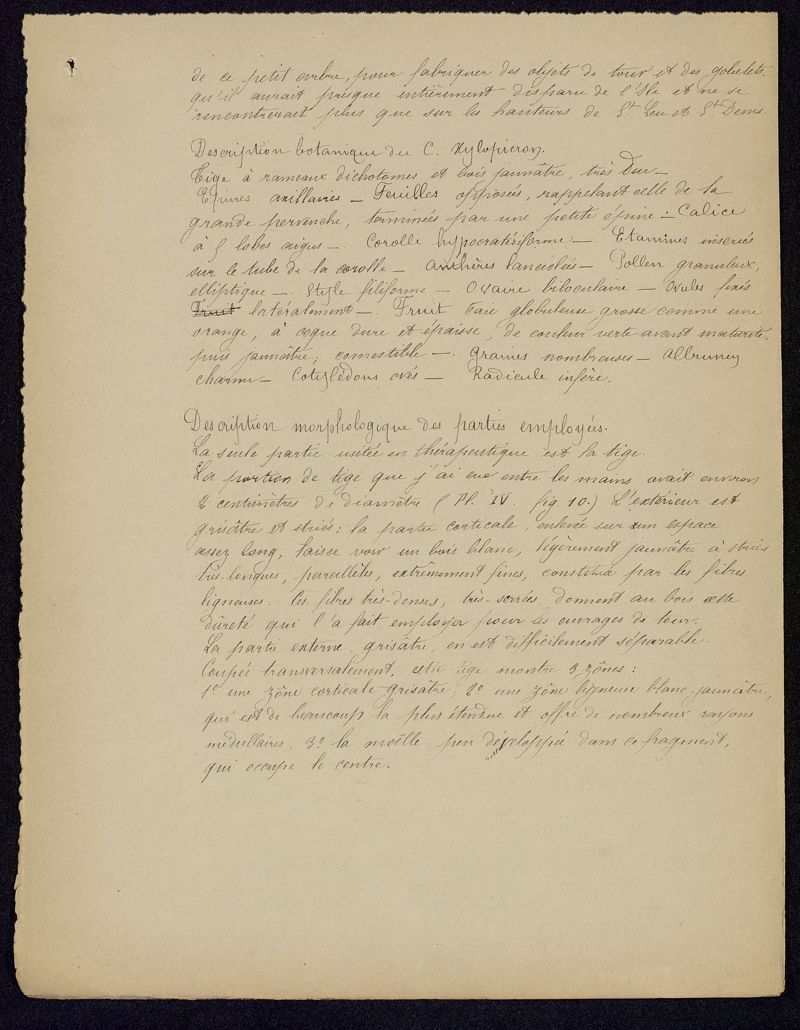 de ce petit arbre, pour fabriquer des objets de tour et des gobelets,
qu'il aurait presque entièrement disparu de l'Ile et ne se
rencontrerait plus que sur les hauteurs de St Leu et St Denis.
Description botanique du C. Xylopicron.
Tige à rameaux dichotomes et bois jaunâtre, très dur —
Epines axillaires — Feuilles opposées, rappelant celle de la
grande pervenche, terminées par une petite épine — Calice
à 5 lobes aigus —. Corolle hypocratériforme —. Etamines inserées
sur le tube de la corolle — anthères lancéolées — Pollen granuleux,
elliptique —. Style filiforme —. Ovaire biloculaire — Ovules fixés
Fruit latéralement —. Fruit baie globuleuse grosse comme une
orange, à coque dure et épaisse, de couleur verte avant maturité,
puis jaunâtre, comestible —. graines nombreuses — Albumen
charnu — Cotylédons ovés — Radicule infère.
Description morphologique des parties employées.
La seule partie usitée en thérapeutique est la tige.
La portion de tige que j'ai eue entre les mains avait environ
2 centimètres de diamètre (Pl. IV. fig 10.) L'extérieur est
grisâtre et striés; la partie corticale, enlevée sur un espace
assez long, laisse voir un bois blanc, légèrement jaunâtre à stries
très longues, pareillèles, extrêmement fines, constitué par les fibres
ligneuses. Ces fibres très-denses, très-serrées, donnent au bois cette
dûreté qui l'a fait employer pour les ouvrages de tour.
La partie externe grisâtre, en est difficilement séparable.
Coupée transversalement, cette tige montre 3 zônes:
1º une zône corticale grisâtre; 2º une zône ligneuse blanc-jaunâtre,
qui est de beaucoup la plus étendue et offre de nombreux rayons
médullaires. 3º la moëlle, peu développée dans ce fragment,
qui occupe le centre.